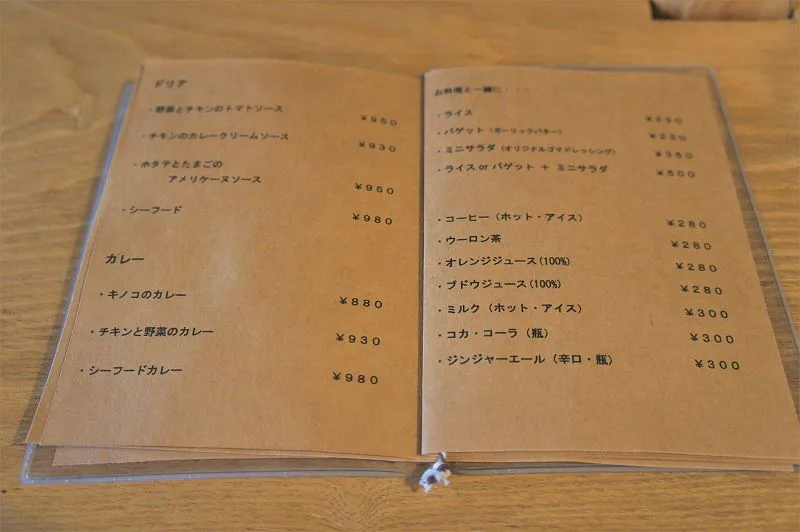 ドリア
・野菜とチキンのトマトソース ￥950
・チキンのカレークリームソース ￥930
・ホタテとたまごの
アメリケーヌソース ￥950
・シーフード ￥980
カレー
・キノコのカレー ￥880
・チキンと野菜のカレー ￥930
・シーフードカレー ￥980
お料理と一緒に・・・
・ライス
・バゲット（ガーリックバター）
・ミニサラダ（オリジナルゴマドレッシング）
・ライス or バゲット ＋ ミニサラダ ￥500
・コーヒー（ホット・アイス） ￥280
・ウーロン茶 ￥280
・オレンジジュース(100%) ￥280
・ブドウジュース(100%) ￥280
・ミルク（ホット・アイス） ￥300
・コカ・コーラ（瓶） ￥300
・ジンジャーエール（辛口・瓶） ￥300